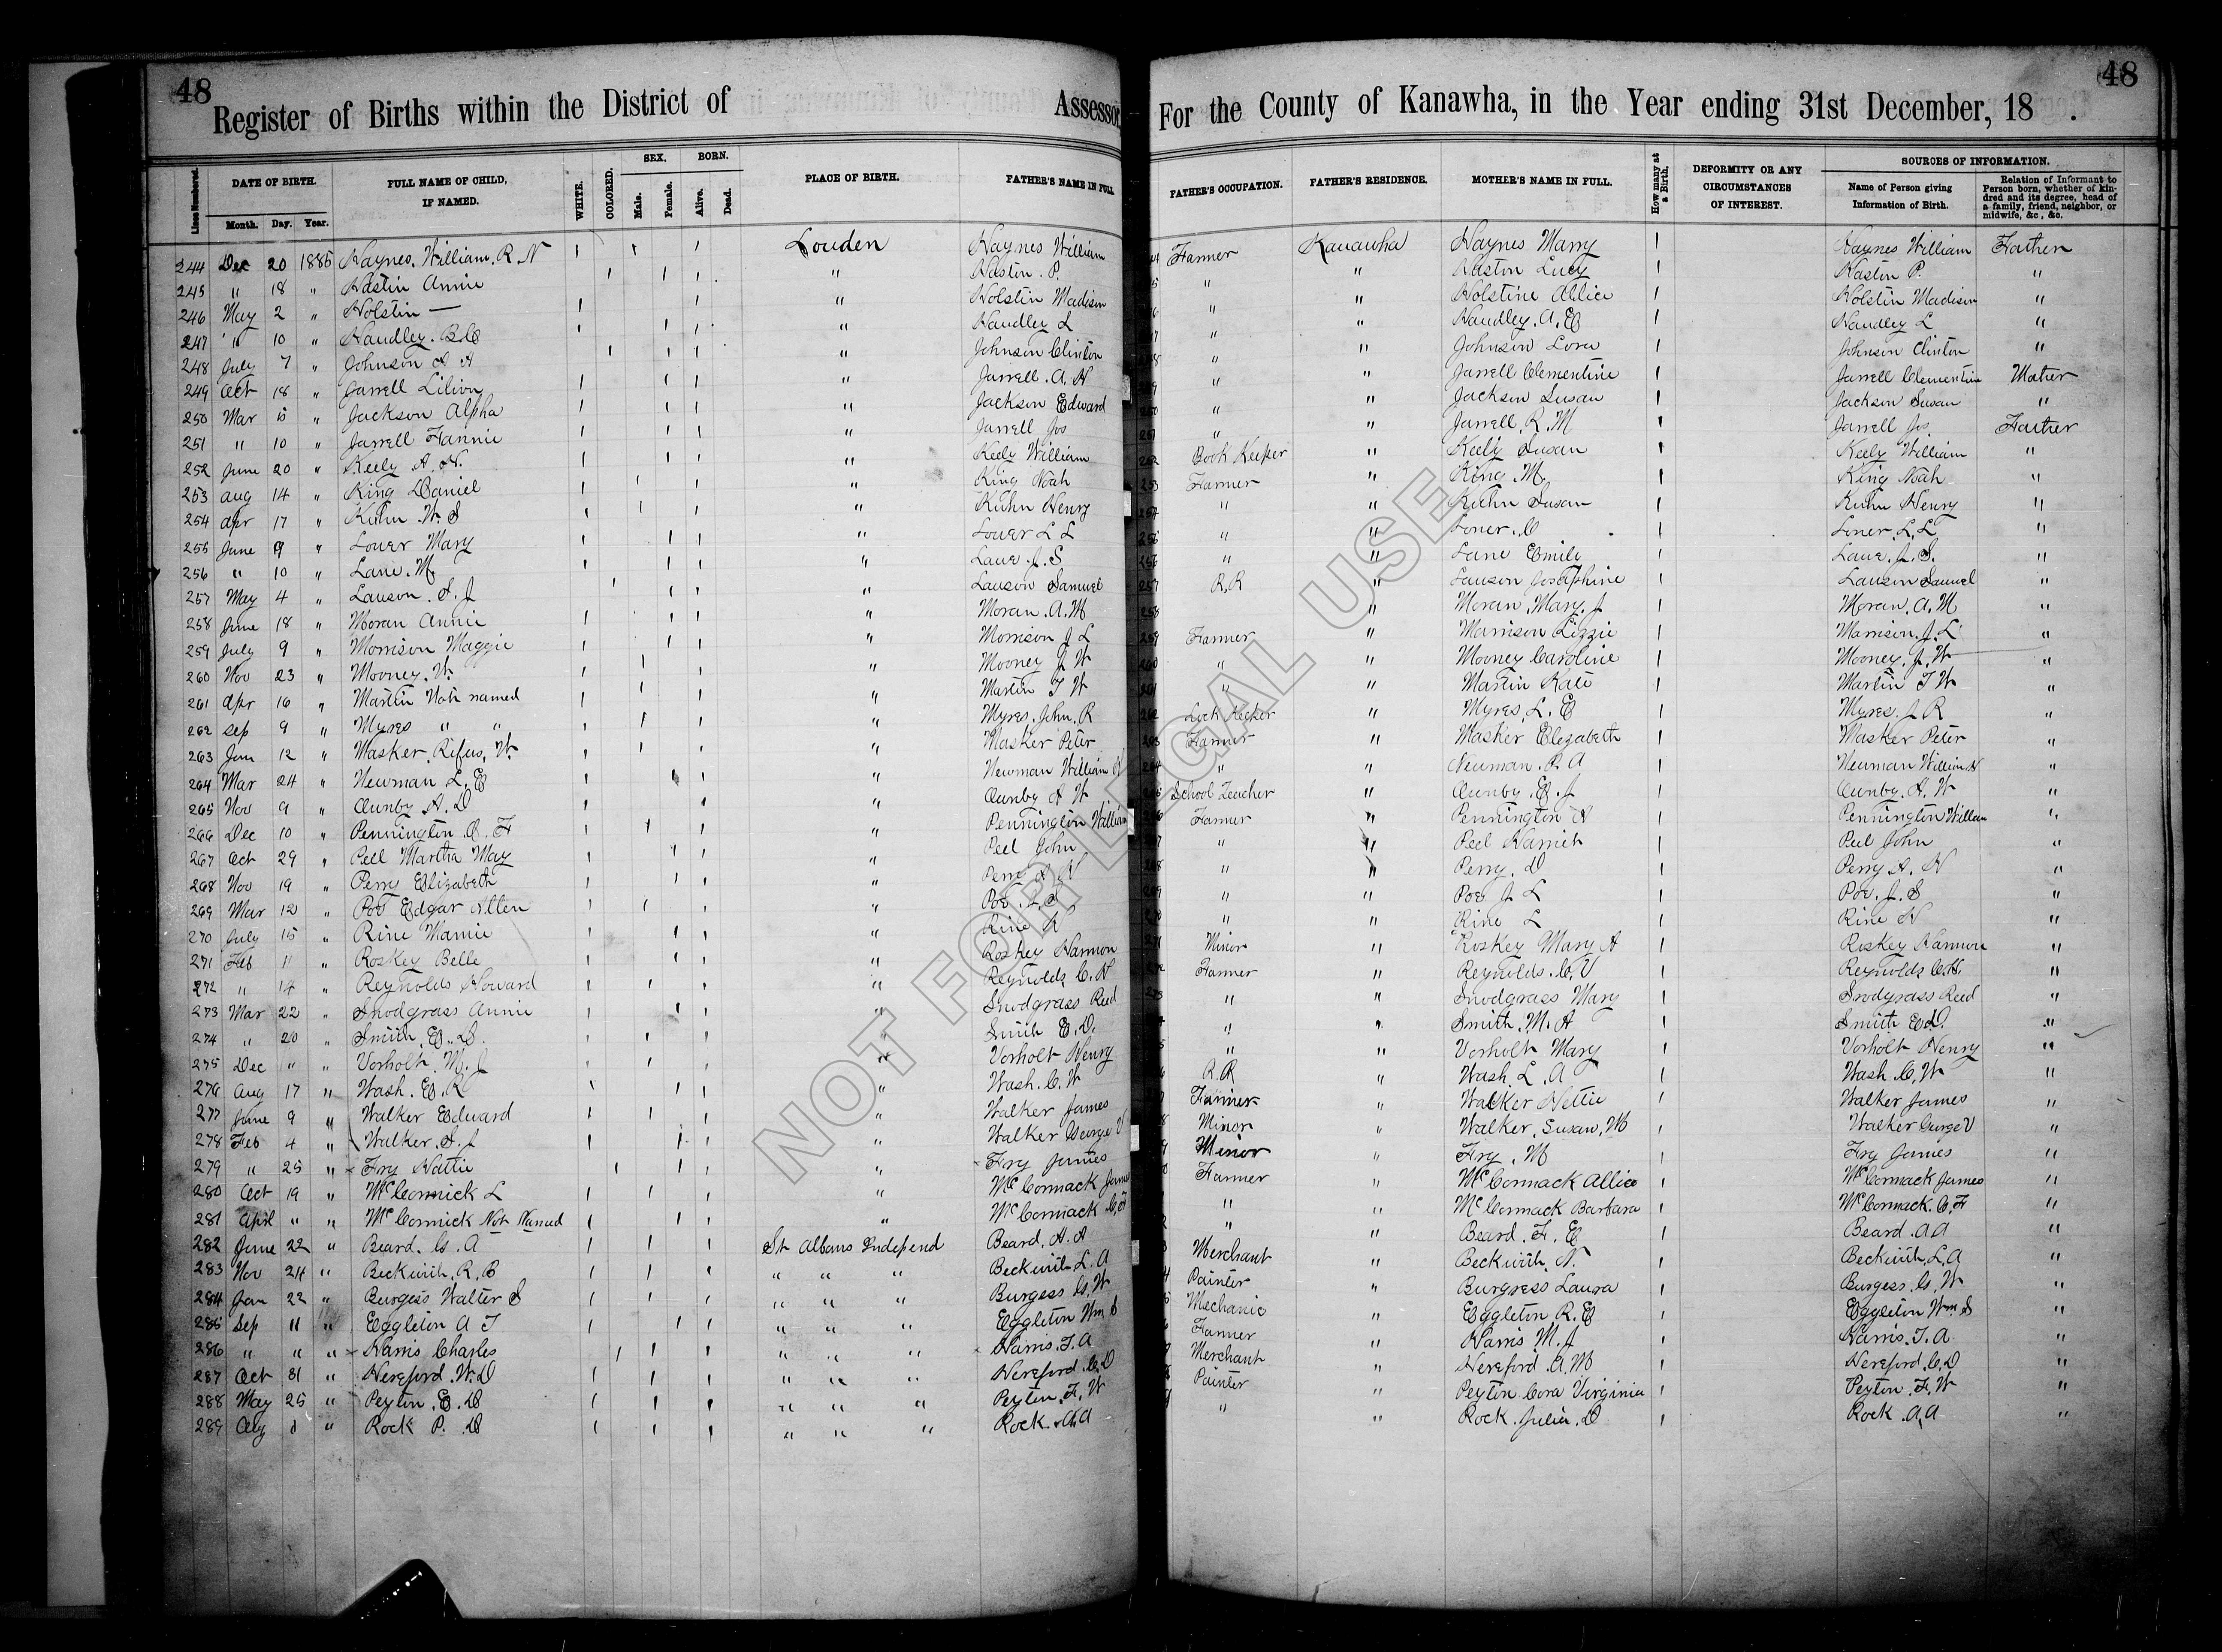 48
48
Register of Births within the District of Assessor
For the County of Kanawha, in the Year ending 31st December, 18 .
Lines Numbered. DATE OF BIRTH. Month. Day. Year. FULL NAME OF CHILD, IF NAMED. WHITE. COLORED. SEX. Male. Female. BORN. Alive. Dead. PLACE OF BIRTH. FATHER'S NAME IN FULL.
FATHER'S OCCUPATION. FATHER'S RESIDENCE. MOTHER'S NAME IN FULL. How many at a Birth. DEFORMITY OR ANY CIRCUMSTANCES OF INTEREST. SOURCES OF INFORMATION. Name of Person giving Information of Birth. Relation of Informant to Person born, whether of kindred and its degree, head of a family, friend, neighbor, or midwife, &c, &c.
244 Dec 20 1885 Haynes, William, R. N Louden Haynes William Farmer Kanawha Haynes Marry Haynes William Farther
245 " 18 " Hastin Annie " Hastin. P. " " Haston Lucy Hastin P. "
246 May 2 " Holstin — " Holstin Madison " " Holstine Allice Holstin Madison "
247 " 10 " Handley. " Handley L " " Handley. A. E Handley L "
248 July 7 " Johnson A A " Johnson Clinton " " Johnson Lora Johnson Clinton "
249 Oct 18 " Jarrell Lilion " Jarrell. A. H " " Jarrell Clementine Jarrell Clementine Mother
250 Mar 5 " Jackson Alpha " Jackson Edward " " Jackson Susan Jackson Susan "
251 " 10 " Jarrell Fannie " Jarrell Jos " " Jarrell, R. M Jarrell Jos. Farther
252 June 20 " Keely A. H. " Keely William Book Keeper " Keely Susan Keely William "
253 Aug 14 " King Daniel " King Noah Farmer " King. M. King Noah "
254 Apr 17 " Kuhn W. S " Kuhn Henry " " Kuhn Susan Kuhn Henry "
255 June 9 " Lover Mary " Lover L L " " Loner. Loner. L. L "
256 " 10 " Lane. M. " Lane. J. S " " Lane Emily Lane. J. S. "
257 May 4 " Lauson. S. J " Lauson Samuel R. R " Lauson Josephine Lauson Samuel "
258 June 18 " Moran Annie " Moran. A. M " Moran, Mary. J Moran. A. M "
259 July 9 " Morrison Maggie " Morrison J L Farmer " Marrison Lizzie Marrison. J. L "
260 Nov 23 " Mooney. W. " Mooney J W " " Mooney Caroline Mooney. J. W "
261 Apr 16 " Martin Not named " Martin T W " " Martin Kate Martin T W "
262 Sep 9 " Myres " " " Myres. John. R Lock Keeker " Myres, L. E Myres. J R "
263 Jan 12 " Masker. Rifus. W. " Masker Peter Farmer " Masker Elezabeth Masker Peter "
264 Mar 24 " Newman L. E " Newman William H " " Neuman. P. A Neuman William H "
265 Nov 9 " Ounby A. D " Ounby A W School Teacher " Ounby. E. J Ounby. A. W "
266 Dec 10 " Pennington. O. F " Pennington William Farmer " Pennington A Pennington William "
267 Oct 29 " Peel Martha May " Peel John " " Peel Harriet Peel John "
268 Nov 19 " Perry Elizabeth " Perry A H " " Perry. D Perry A. H "
269 Mar 12 " Poe Edgar Allen " Poe. J. S. " " Poe J L Poe. J. S "
270 July 15 " Rine Mamie " Rine H " " Rine L Rine H "
271 Feb 11 " Roskey Belle " Roskey Harmon Minor " Roskey Mary A Roskey Harmon "
272 " 14 " Reynolds Howard " Reynolds C. H Farmer " Reynolds. C. V Reynolds C. H. "
273 Mar 22 " Snodgrass Annie " Snodgrass Reed " " Snodgrass Mary Snodgrass Reed "
274 " 20 " Smith, E. D. " Smith E. D. " " Smith. M. A Smith E. D. "
275 Dec " " Vorholt. M. J " Vorholt Henry " " Vorholt Mary Vorholt Henry "
276 Aug 17 " Wash. E. R " Wash. C. W R. R " Wash. L. A Wash. C. W "
277 June 9 " Walker Edward " Walker James Farmer " Walker Nettie Walker James "
278 Feb 4 " Walker. A. J " Walker George V Minor " Walker, Susan, M Walker Gorge V "
279 " 25 " Fry Hattie " Fry James Minor " Fry. M Fry James "
280 Oct 19 " McCormick L " McCormack James Farmer " McCormack Allice McCormack James "
281 April " " McCormick Not Named " McCormack C. F " " McCormack Barbara McCormack. C. F "
282 June 22 " Beard. G. A St Albans Independ Beard. A. A " " Beard. F. E Beard. A A "
283 Nov 24 " Beckwith. R. B " " " Beckwith L. A Merchant " Beckwith. N. Beckwith. L. A "
284 Jan 22 " Burgess Walter S " " " Burgess G. W Painter " Burgress Laura Burgess. G. W "
285 Sep 11 " Eggleton A T " " " Eggleton Wm S Mechanic " Eggleton R. E Eggleton Wm. S "
286 " " " Harris Charles " " " Harris. T. A Farmer " Harris M. J Harris. T. A "
287 Oct 31 " Hereford. W. D " " " Hereford. C. D Merchant " Hereford. A. M Hereford. C. D "
288 May 25 " Peyton. E. D " " " Peyton. F. W Painter " Peyton Cora Virginia Peyton. F. W "
289 Aug 1 " Rock P. D " " " Rock. A A " " Rock. Julia. D Rock. A. A "
NOT FOR LEGAL USE